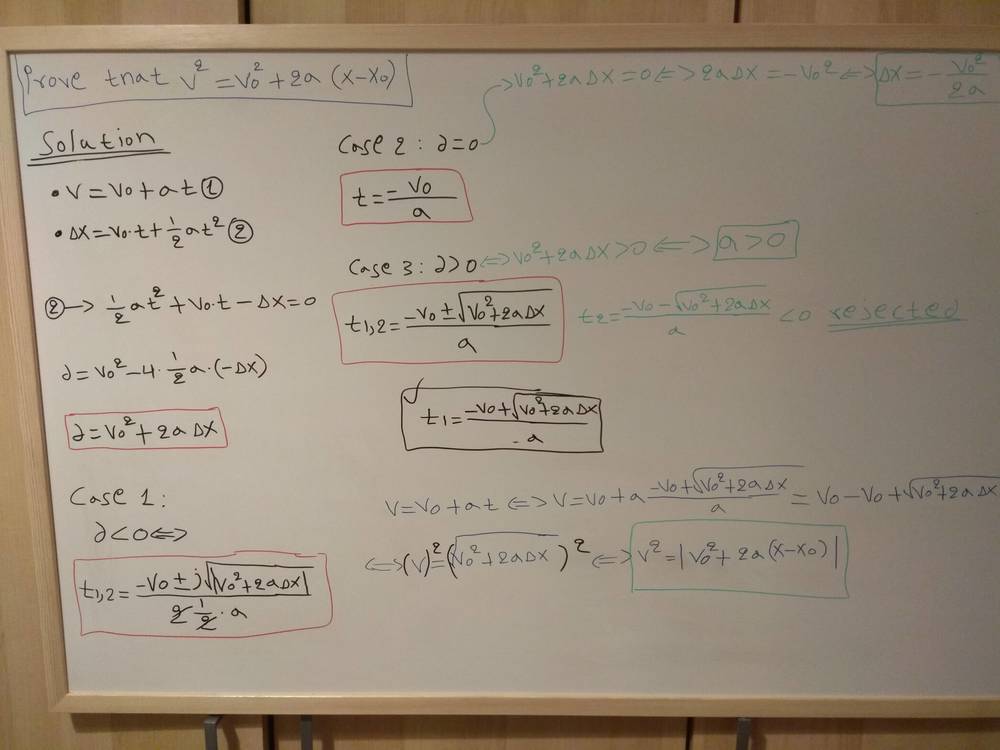 Prove that v² = v₀² + 2a (x-x₀)
Solution
• v = v₀ + at ①
• Δx = v₀·t + ½at² ②
② → ½at² + v₀·t - Δx = 0
∂ = v₀² - 4·½a·(-Δx)
∂ = v₀² + 2aΔx
Case 1:
∂<0 ⇔
t₁,₂ = (-v₀ ± j√|v₀²+2aΔx|) / (2·½·a)
Case 2: ∂=0
→ v₀² + 2aΔx = 0 ⇔ 2aΔx = -v₀² ⇔ Δx = -v₀²/2a
t = -v₀/a
Case 3: ∂>0 ⇔ v₀² + 2aΔx > 0 ⇔ a>0
t₁,₂ = (-v₀ ± √(v₀²+2aΔx)) / a
t₂ = (-v₀ - √(v₀²+2aΔx)) / a < 0 rejected
✓ t₁ = (-v₀ + √(v₀²+2aΔx)) / a
v = v₀ + at ⇔ v = v₀ + a (-v₀+√(v₀²+2aΔx))/a = v₀ - v₀ + √(v₀²+2aΔx)
⇔ (v)² = (√(v₀²+2aΔx))² ⇔ v² = |v₀² + 2a(x-x₀)|